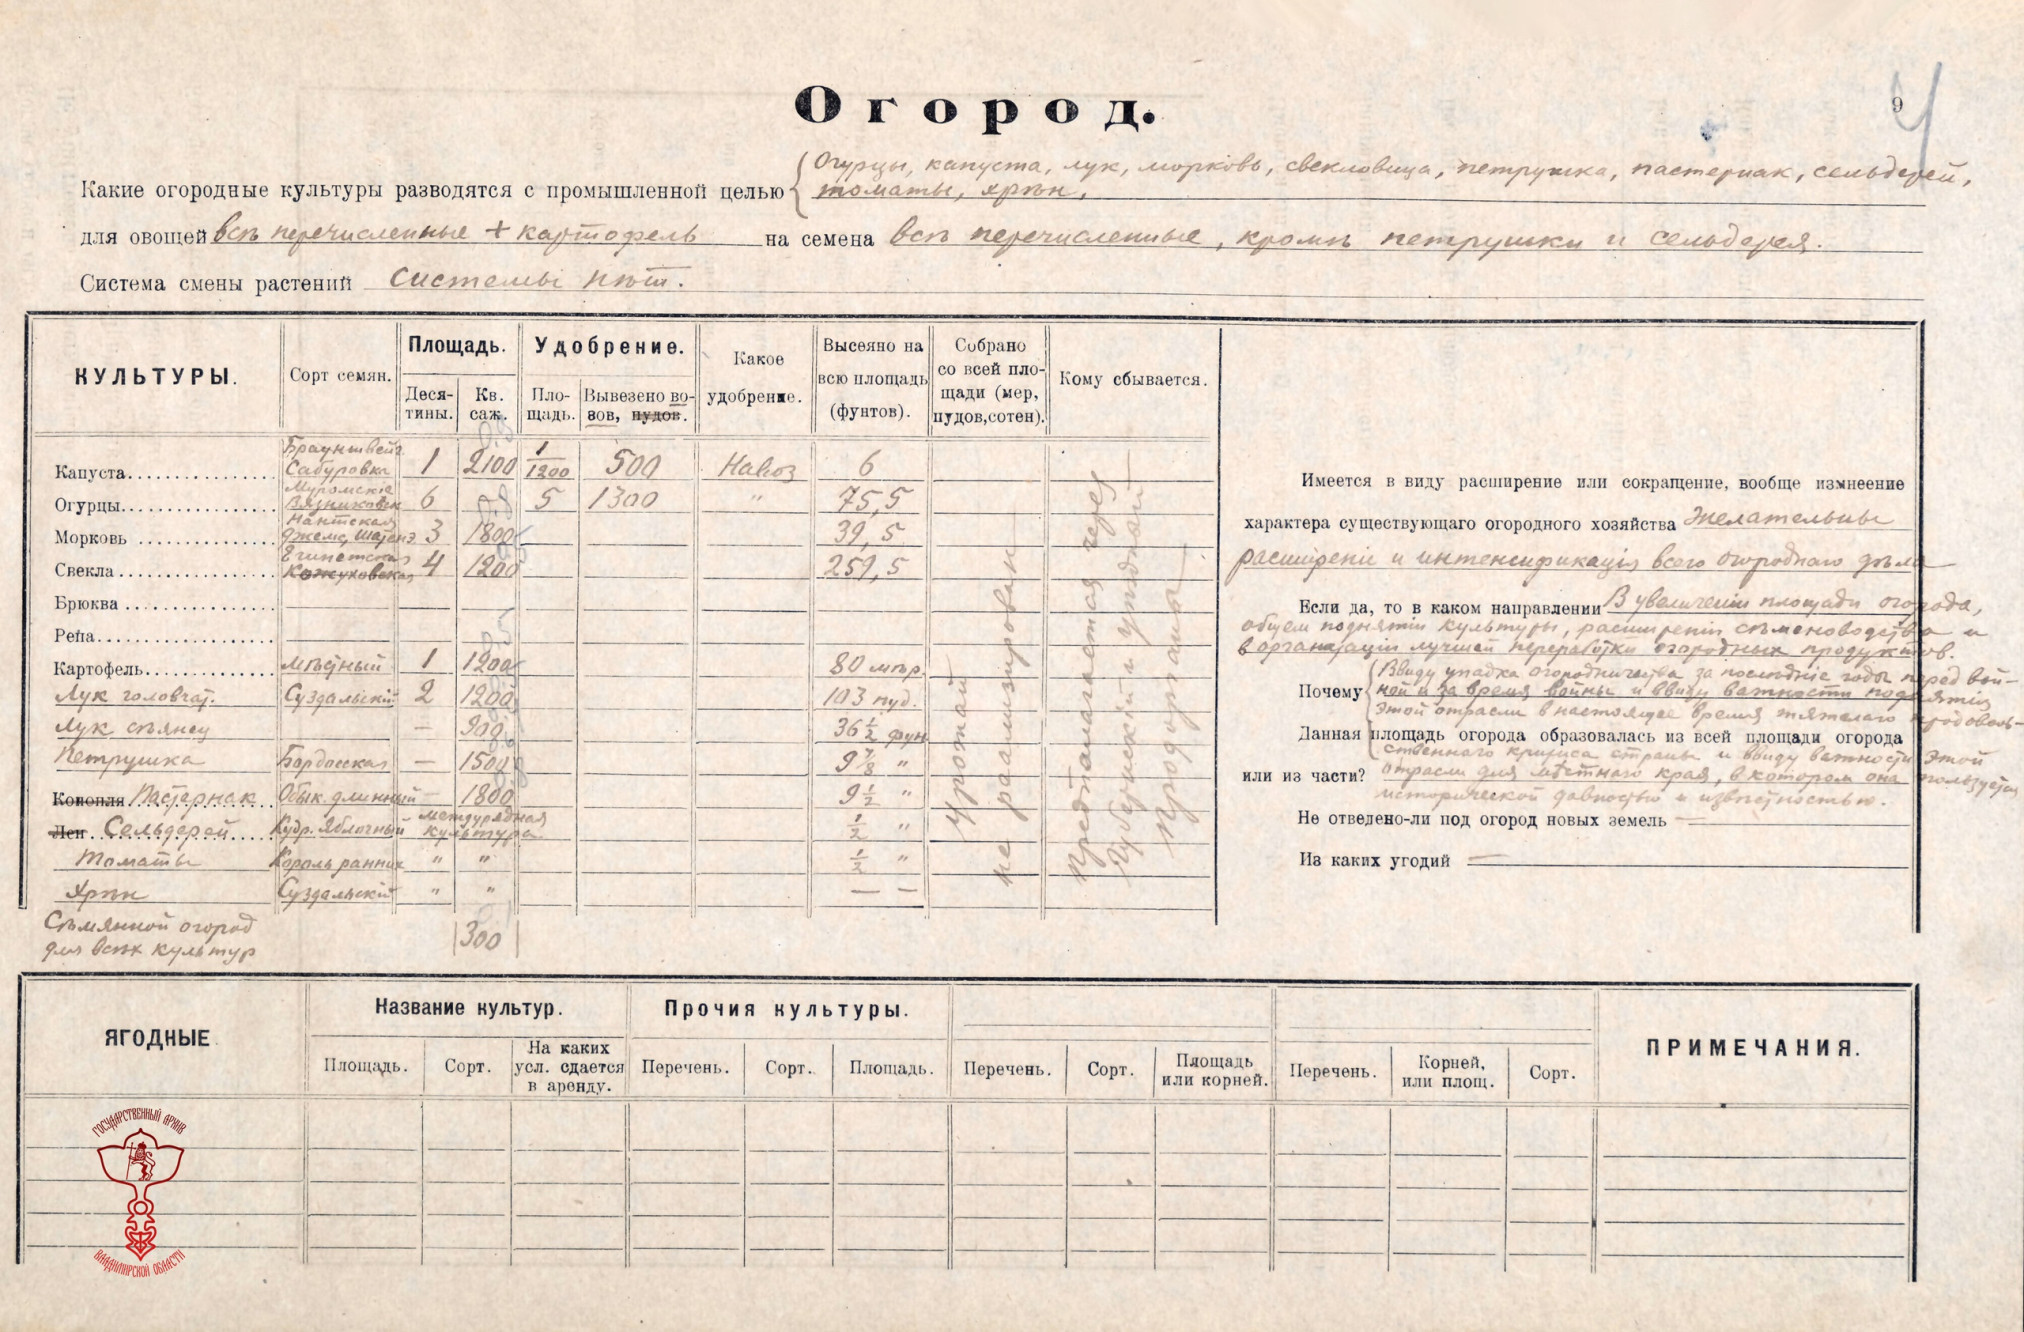 Огород.
9
Какие огородные культуры разводятся с промышленной целью { Огурцы, капуста, лук, морковь, свекловица, петрушка, пастернак, сельдерей,
томаты, хрѣн,
для овощей всѣ перечисленные + картофель на семена всѣ перечисленные, кромѣ петрушки и сельдерея.
Система смены растений системы нѣт.
КУЛЬТУРЫ. Сорт семян. Площадь. Удобрение. Какое удобрение. Высеяно на всю площадь (фунтов). Собрано со всей площади (мер, пудов,сотен). Кому сбывается.
Деся-тины. Кв. саж. Пло-щадь. Вывезено во-зов, пудов.
Капуста Брауншвейг Сабуровка 1 2100 1/1200 500 Навоз 6
Огурцы Муромскіе Вязниковск 6 5 1300 " 75,5
Морковь Нантская Джемс, Шатенэ 3 1800 39,5
Свекла Египетская Кожуховская 4 1200 259,5
Брюква
Репа
Картофель мѣстный 1 1200 80 мѣр.
Лук головчат. Суздальскій 2 1200 103 пуд.
Лук сѣянец — 900 36 1/2 фун
Петрушка Бордосская — 1500 9 7/8 "
Конопля Пастернак Обык. длинный — 1800 9 1/2 "
Лен Сельдерей Кудр. Яблочный междурядная культура 1/2 "
Томаты Король ранних " " 1/2 "
Хрѣн Суздальскій " " — —
Сѣмянной огород
для всѣх культур 300
Урожай
не реализирован
Предполагается через
Губернскій и уездный
Продорганы
Имеется в виду расширение или сокращение, вообще измнеение
характера существующаго огородного хозяйства Желательны
расширеніе и интенсификація всего огороднаго дѣла
Если да, то в каком направлении В увеличеніи площади огорода,
общем поднятіи культуры, расширеніи сѣменоводства и
в организаціи лучшей переработки огородных продуктов.
Почему { Ввиду упадка огородничества за послѣдніе годы перед вой-
ной и за время войны и ввиду важности поднятія
этой отрасли в настоящее время тяжелаго продоволь-
Данная площадь огорода образовалась из всей площади огорода
ственного кризиса страны и ввиду важности этой
или из части? отрасли для мѣстного края, в котором она пользуется
исторической давностью и извѣстностью.
Не отведено-ли под огород новых земель —
Из каких угодий —
ЯГОДНЫЕ Название культур. Прочия культуры. ПРИМЕЧАНИЯ.
Площадь. Сорт. На каких усл. сдается в аренду. Перечень. Сорт. Площадь. Перечень. Сорт. Площадь или корней. Перечень. Корней, или площ. Сорт.
ГОСУДАРСТВЕННЫЙ АРХИВ
ВЛАДИМИРСКОЙ ОБЛАСТИ